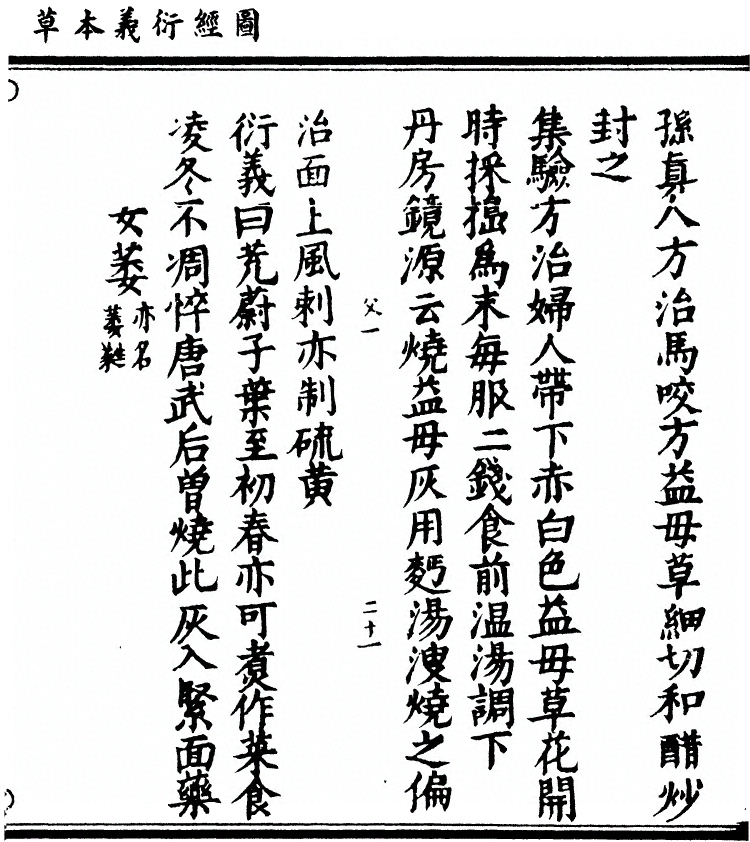 圖經衍義本草
孫真人方治馬咬方益毋草細切和醋炒
封之
集驗方治婦人帶下赤白色益毋草花開
時採搗為末每服二錢食前温湯調下
丹房鏡源云燒益毋灰用麪湯溲燒之偏
父一
二十一
治面上風刺亦制硫黃
衍義曰茺蔚子葉至初春亦可煑作菜食
凌冬不凋悴唐武后曾燒此灰入緊面藥
女萎亦名
萎蕤